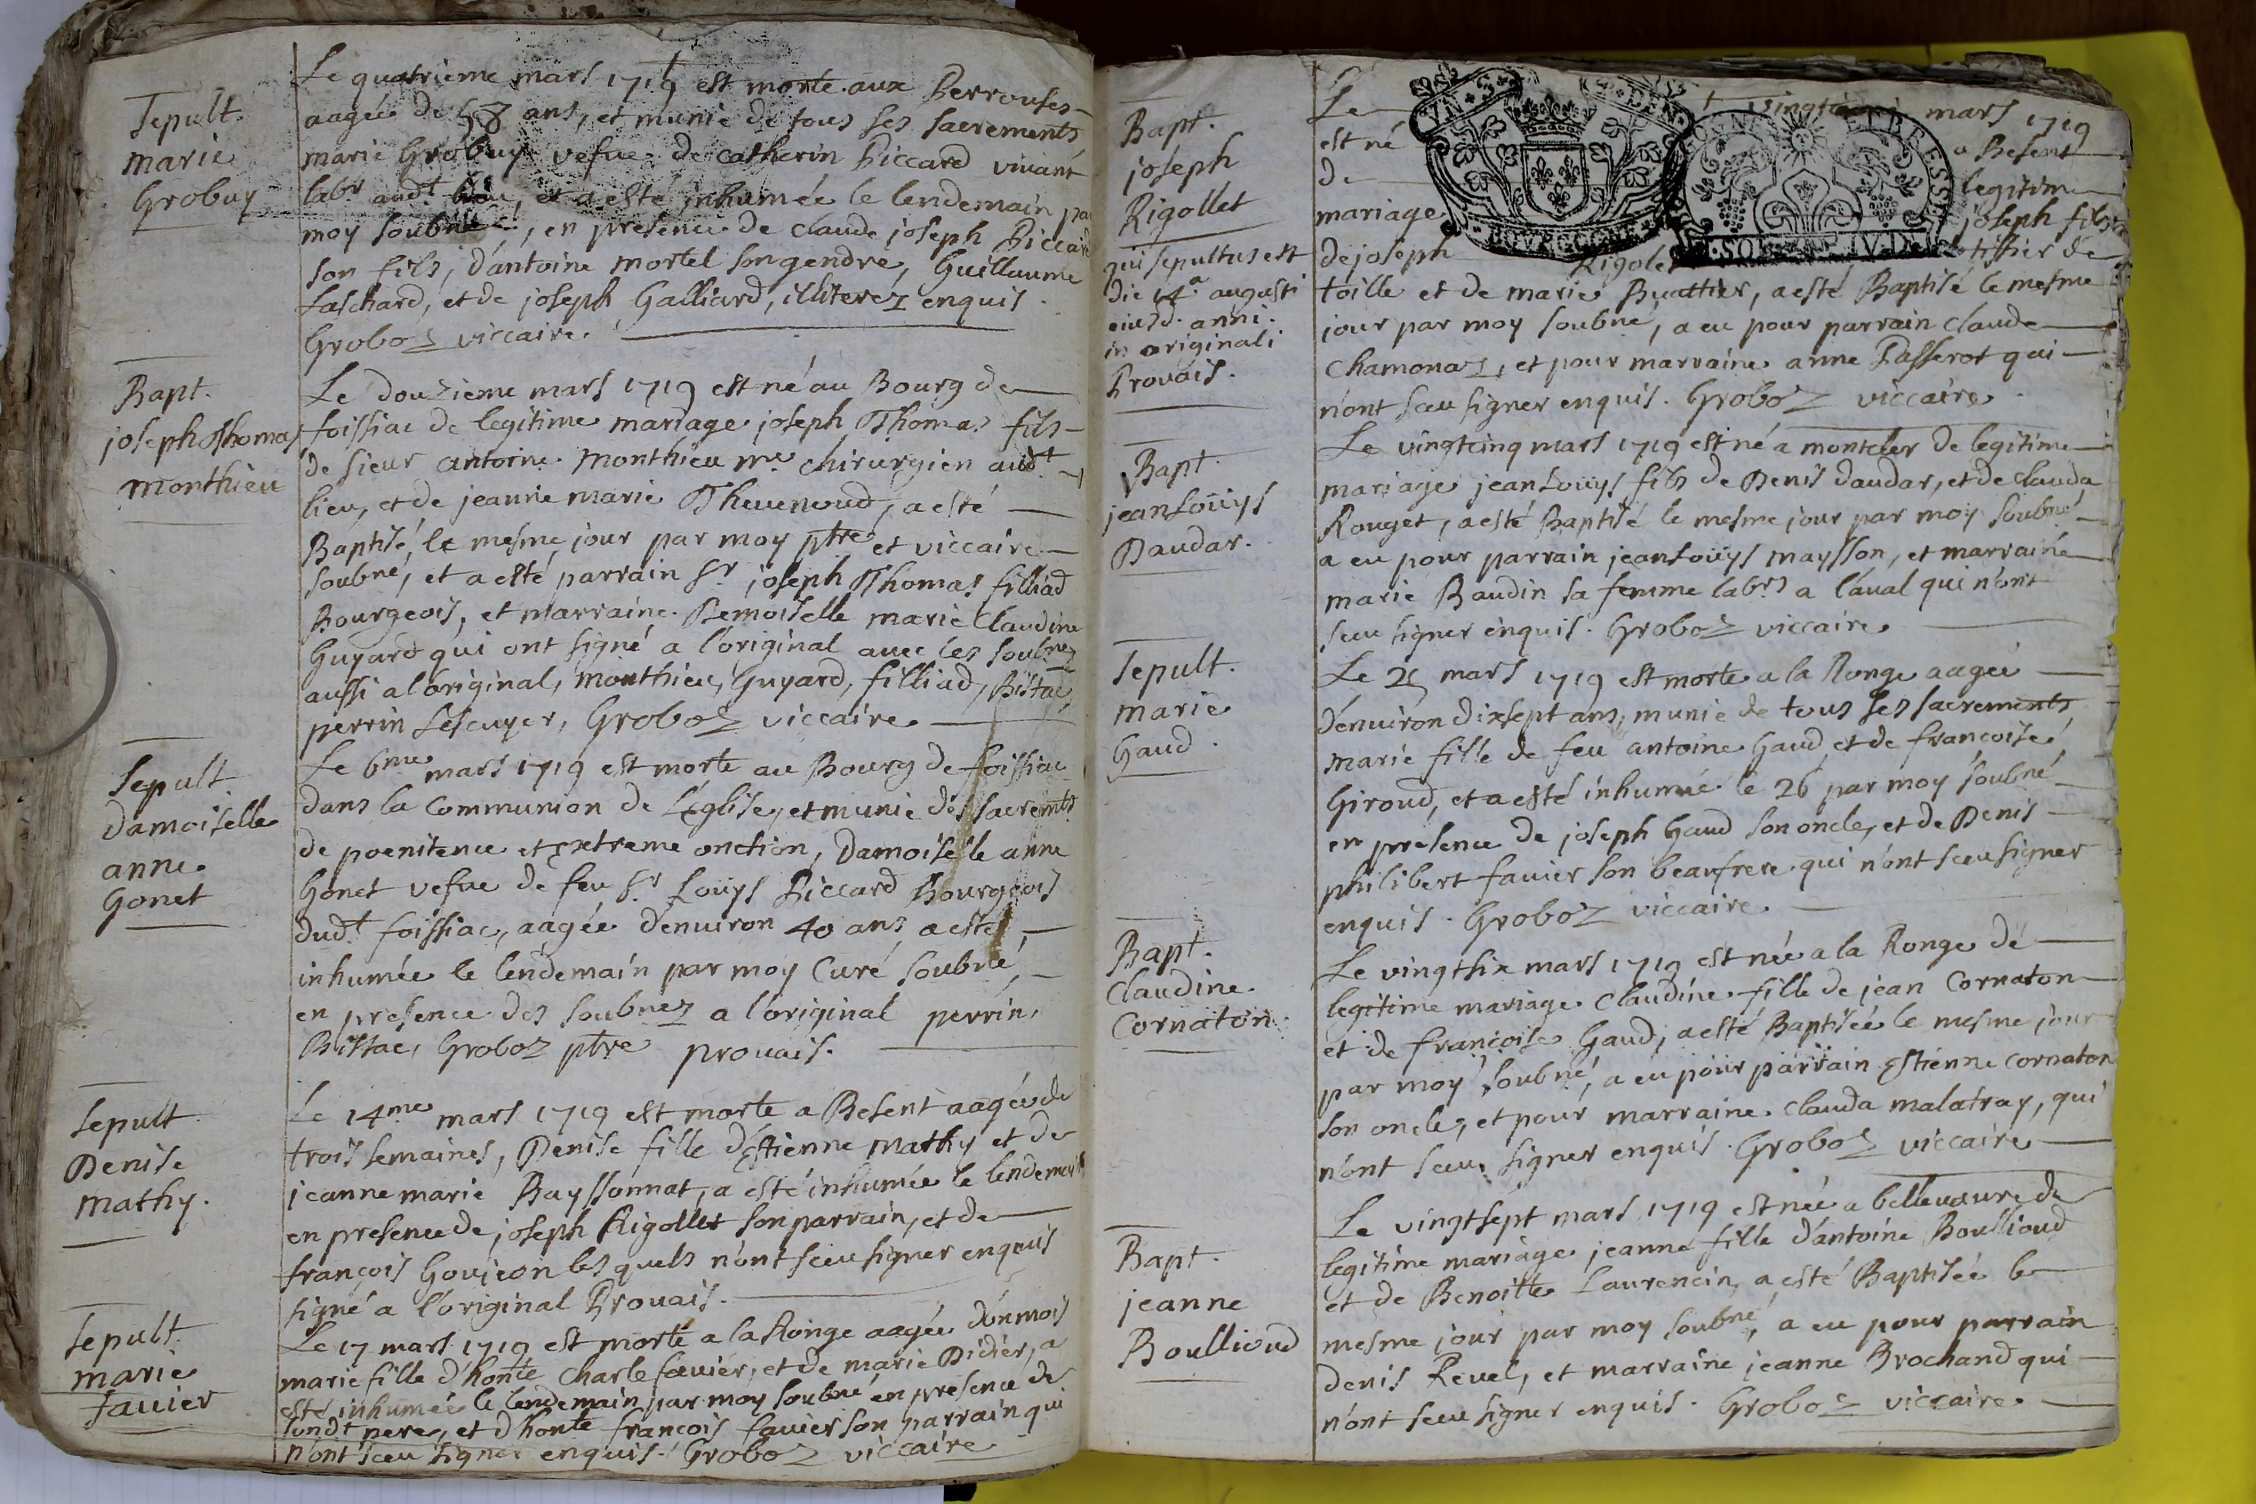 Sepult.
marie
Grobuy
Le quatrieme mars 1719 est morte aux Perrouses
aagée de 58 ans, et munie de tous ses sacrements
marie Grobuy vefue de catherin Piccard viuant
labr audt lieu, et a esté inhumée le lendemain par
moy soubné, en presence de claude joseph Piccard
son fils, d'antoine mortel son gendre, Guillaume
Laschard, et de joseph Galliard, illiterez enquis.
Groboz viccaire.
Bapt.
joseph Thomas
monthieu
Le douzieme mars 1719 est né au Bourg de
foissiac de legitime mariage joseph Thomas fils
de sieur antoine monthieu me chirurgien audt
lieu, et de jeanne marie Theuenoud, a esté
Baptisé, le mesme jour par moy ptre et viccaire
soubné, et a esté parrain sr joseph Thomas filliad
Bourgeois, et marraine Demoiselle marie Claudine
Guyard qui ont signé a l'original auec les soubnez
aussi a l'original, monthieu, Guyard, filliad, Bistac,
perrin Lescuyer, Groboz viccaire
Sepult.
damoiselle
anne
Gonet
Le 6me mars 1719 est morte au Bourg de foissiac
dans la Communion de L'Eglise, et munie des sacremts
de poenitence et Extreme onction, Damoiselle anne
Gonet vefue de feu sr Louys Piccard Bourgeois
dudt foissiac, aagée d'enuiron 40 ans, a esté
inhumée le lendemain par moy Curé soubné,
en presence des soubnez a l'original perrin,
Bistac, Groboz ptre prouais.
Sepult
Denise
mathy.
Le 14me mars 1719 est morte a Besent aagée de
trois semaines, Denise fille d'Estienne mathy et de
jeanne marie Bayssonnat, a esté inhumée le lendemain
en presence de joseph Rigollet son parrain, et de
françois Goujeon lesquels n'ont sceu signer enquis
signé a l'original Prouais.
Sepult.
marie
fauier
Le 17 mars 1719 est morte a la Ronge aagée d'un mois
marie fille d'honte Charle fauier, et de marie Didier, a
esté inhumée le lendemain par moy soubné en presence de
sondt pere, et d'honte francois fauier son parrain qui
n'ont sceu signer enquis. Groboz viccaire
Bapt.
joseph
Rigollet
qui sepultus est
die 14a augusti
eiusd. anni.
in originali
Prouais.
Le vingt mars 1719
est né a Besent
de legitime
mariage joseph fils
de joseph Rigolet tissier de
toille et de marie Buattier, a esté Baptisé le mesme
jour par moy soubné, a eu pour parrain claude
chamonaz, et pour marraine anne Passerot qui
n'ont sceu signer enquis. Groboz viccaire.
Bapt.
jean Louys
Daudar.
Le vingtcinq mars 1719 est né a montcler de legitime
mariage jean Louys fils de Denis daudar, et de clauda
Rouget, a esté Baptisé le mesme jour par moy soubné
a eu pour parrain jean Louys maysson, et marraine
marie Baudin sa femme labrs a laual qui n'ont
sceu signer enquis. Groboz viccaire
Sepult.
marie
Gaud.
Le 25 mars 1719 est morte a la Ronge aagée
d'enuiron dixsept ans, munie de tous ses sacrements
marie fille de feu antoine Gaud, et de francoise
Giroud, et a esté inhumée le 26 par moy soubné
en presence de joseph Gaud son oncle, et de Denis
philibert fauier son beaufrere qui n'ont sceu signer
enquis. Groboz viccaire
Bapt.
Claudine
Cornaton.
Le vingtsix mars 1719 est née a la Ronge de
legitime mariage Claudine fille de jean Cornaton
et de françoise Gaud, a esté Baptisée le mesme jour
par moy soubné, a eu pour parrain Estienne cornaton
son oncle, et pour marraine clauda malatray, qui
n'ont sceu signer enquis. Groboz viccaire
Bapt.
jeanne
Boullioud
Le vingtsept mars 1719 est née a belleuaure de
legitime mariage jeanne fille d'antoine Boullioud
et de Benoitte Laurencin, a esté Baptisée le
mesme jour par moy soubné, a eu pour parrain
denis Reuel, et marraine jeanne Brochand qui
n'ont sceu signer enquis. Groboz viccaire